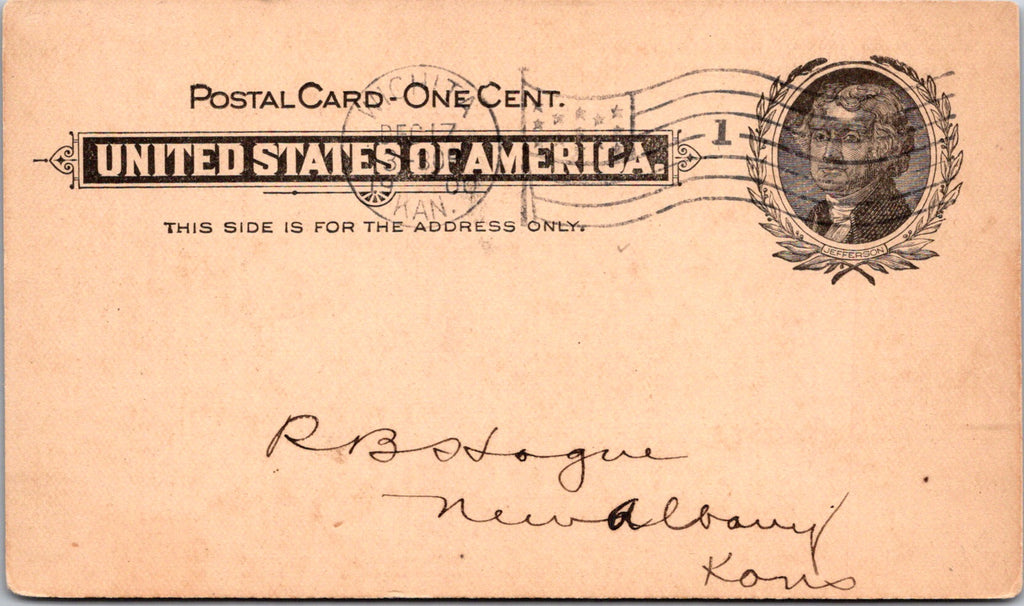 POSTAL CARD - ONE CENT.
UNITED STATES OF AMERICA.
THIS SIDE IS FOR THE ADDRESS ONLY.
WICHITA
DEC 17
1900
KAN.
1
JEFFERSON
R B Hogue
New Albany
Kans